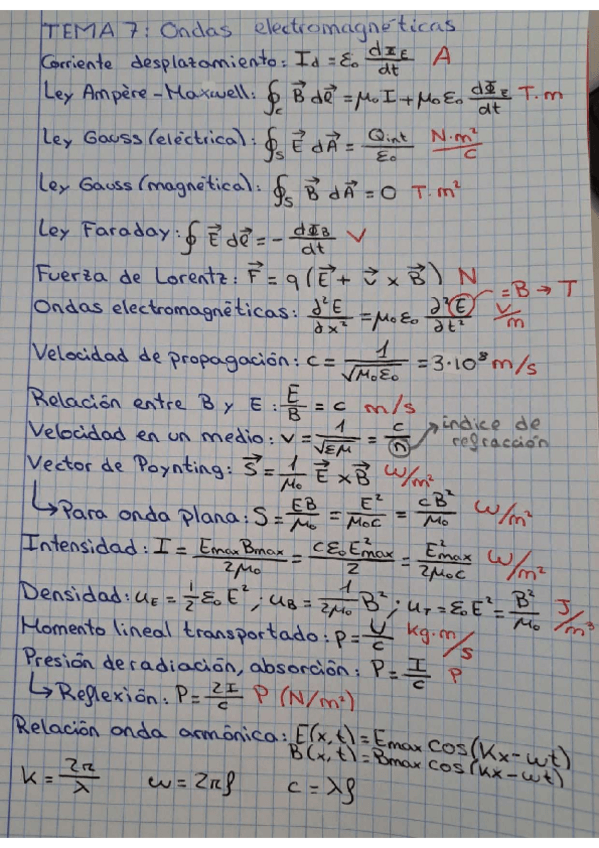 TEMA 7: Ondas electromagnéticas
Corriente desplazamiento: I_d = ε₀ dΦ_E/dt A
Ley Ampère-Maxwell: ∮_c B⃗ dℓ⃗ = μ₀I + μ₀ε₀ dΦ_E/dt T·m
Ley Gauss (eléctrica): ∮_S E⃗ dA⃗ = Q_int/ε₀ N·m²/C
Ley Gauss (magnética): ∮_S B⃗ dA⃗ = 0 T·m²
Ley Faraday: ∮ E⃗ dℓ⃗ = - dΦ_B/dt V
Fuerza de Lorentz: F⃗ = q (E⃗ + v⃗ × B⃗) N
= B → T
Ondas electromagnéticas: ∂²E/∂x² = μ₀ε₀ ∂²E/∂t² V/m
Velocidad de propagación: c = 1/√μ₀ε₀ = 3·10⁸ m/s
Relación entre B y E: E/B = c m/s
Velocidad en un medio: v = 1/√εμ = c/n → índice de refracción
Vector de Poynting: S⃗ = 1/μ₀ E⃗ × B⃗ W/m²
↳ Para onda plana: S = EB/μ₀ = E²/μ₀c = cB²/μ₀ W/m²
Intensidad: I = Emax Bmax/2μ₀ = cε₀E²max/2 = E²max/2μ₀c W/m²
Densidad: u_E = ½ε₀E²; u_B = 1/2μ₀ B²; u_T = ε₀E² = B²/μ₀ J/m³
Momento lineal transportado: p = U/c kg·m/s
Presión de radiación, absorción: P = I/c P
↳ Reflexión: P = 2I/c P (N/m²)
Relación onda armónica: E(x,t) = Emax cos(Kx - ωt)
B(x,t) = Bmax cos(Kx - ωt)
K = 2π/λ ω = 2πf c = λf